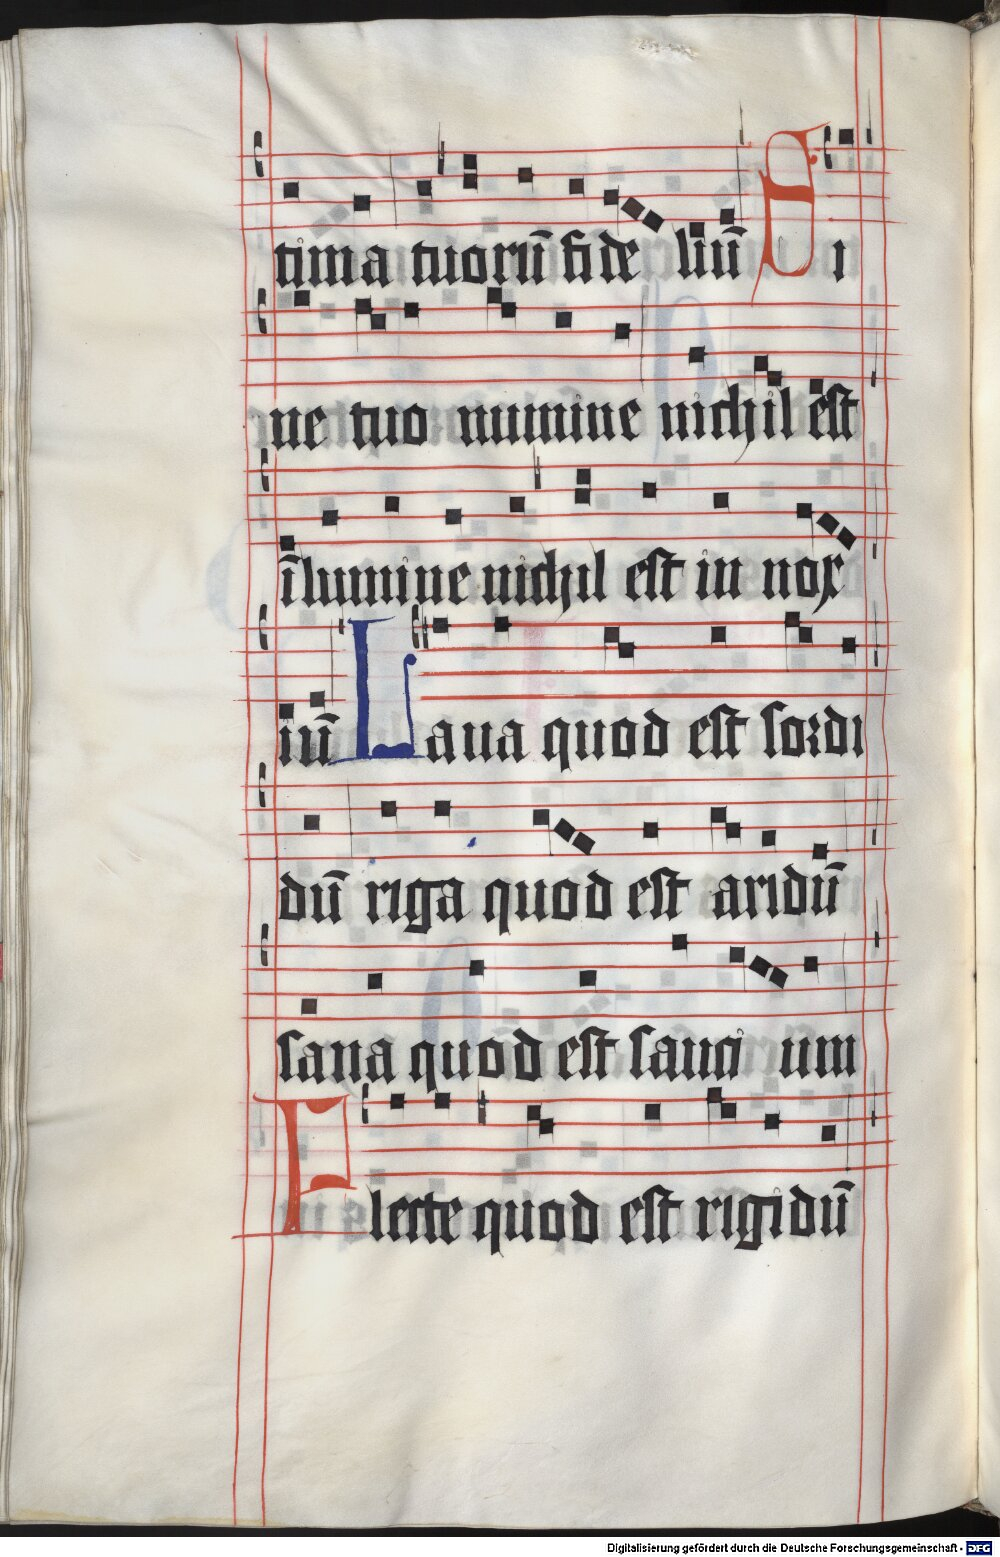 tima tuorū fide liū Si
ne tuo numine nichil est
ī lumine nichil est in nox
iū Laua quod est sordi
dū riga quod est aridū
sana quod est sauci um
Flecte quod est rigidū
Digitalisierung gefördert durch die Deutsche Forschungsgemeinschaft - DFG